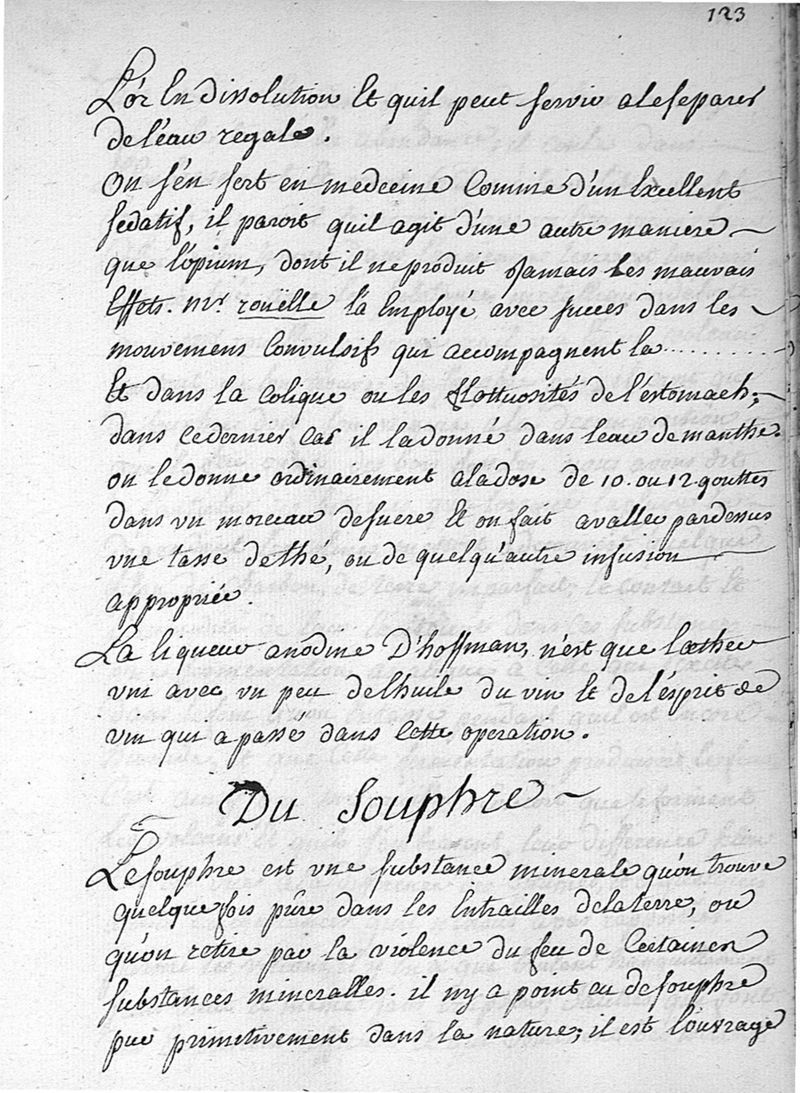 123
L'or En dissolution Et quil peut servir a le separer
de l'eau regale.
On s'en sert en medecine Comme d'un Excellent
sedatif, il paroit quil agit d'une autre maniere
que l'opium, dont il ne produit Jamais les mauvais
Effets. Mr. rouëlle l'a Employé avec succes dans les
mouvemens Convulsifs qui accompagnent la ..........
Et dans la colique ou les flattuosités de l'estomach;
dans ce dernier Cas il la donné dans leau de manthe.
on le donne ordinairement a la dose de 10. ou 12. gouttes
dans un morceau de sucre Et on fait avaller par dessus
une tasse de thé, ou de quelqu'autre infusion
appropriée.
La liqueur anodine D'hoffman, n'est que l'æther
vin avec un peu de l'huile du vin Et de l'ésprit de
vin qui a passé dans Cette operation.
Du Souphre
Le souphre est une substance minerale qu'on trouve
quelque fois pûre dans les Entrailles de la terre, ou
qu'on retire par la violence du feu de Certaines
substances mineralles. il ny a point eu de souphre
pur primitivement dans la nature; il est l'ouvrage